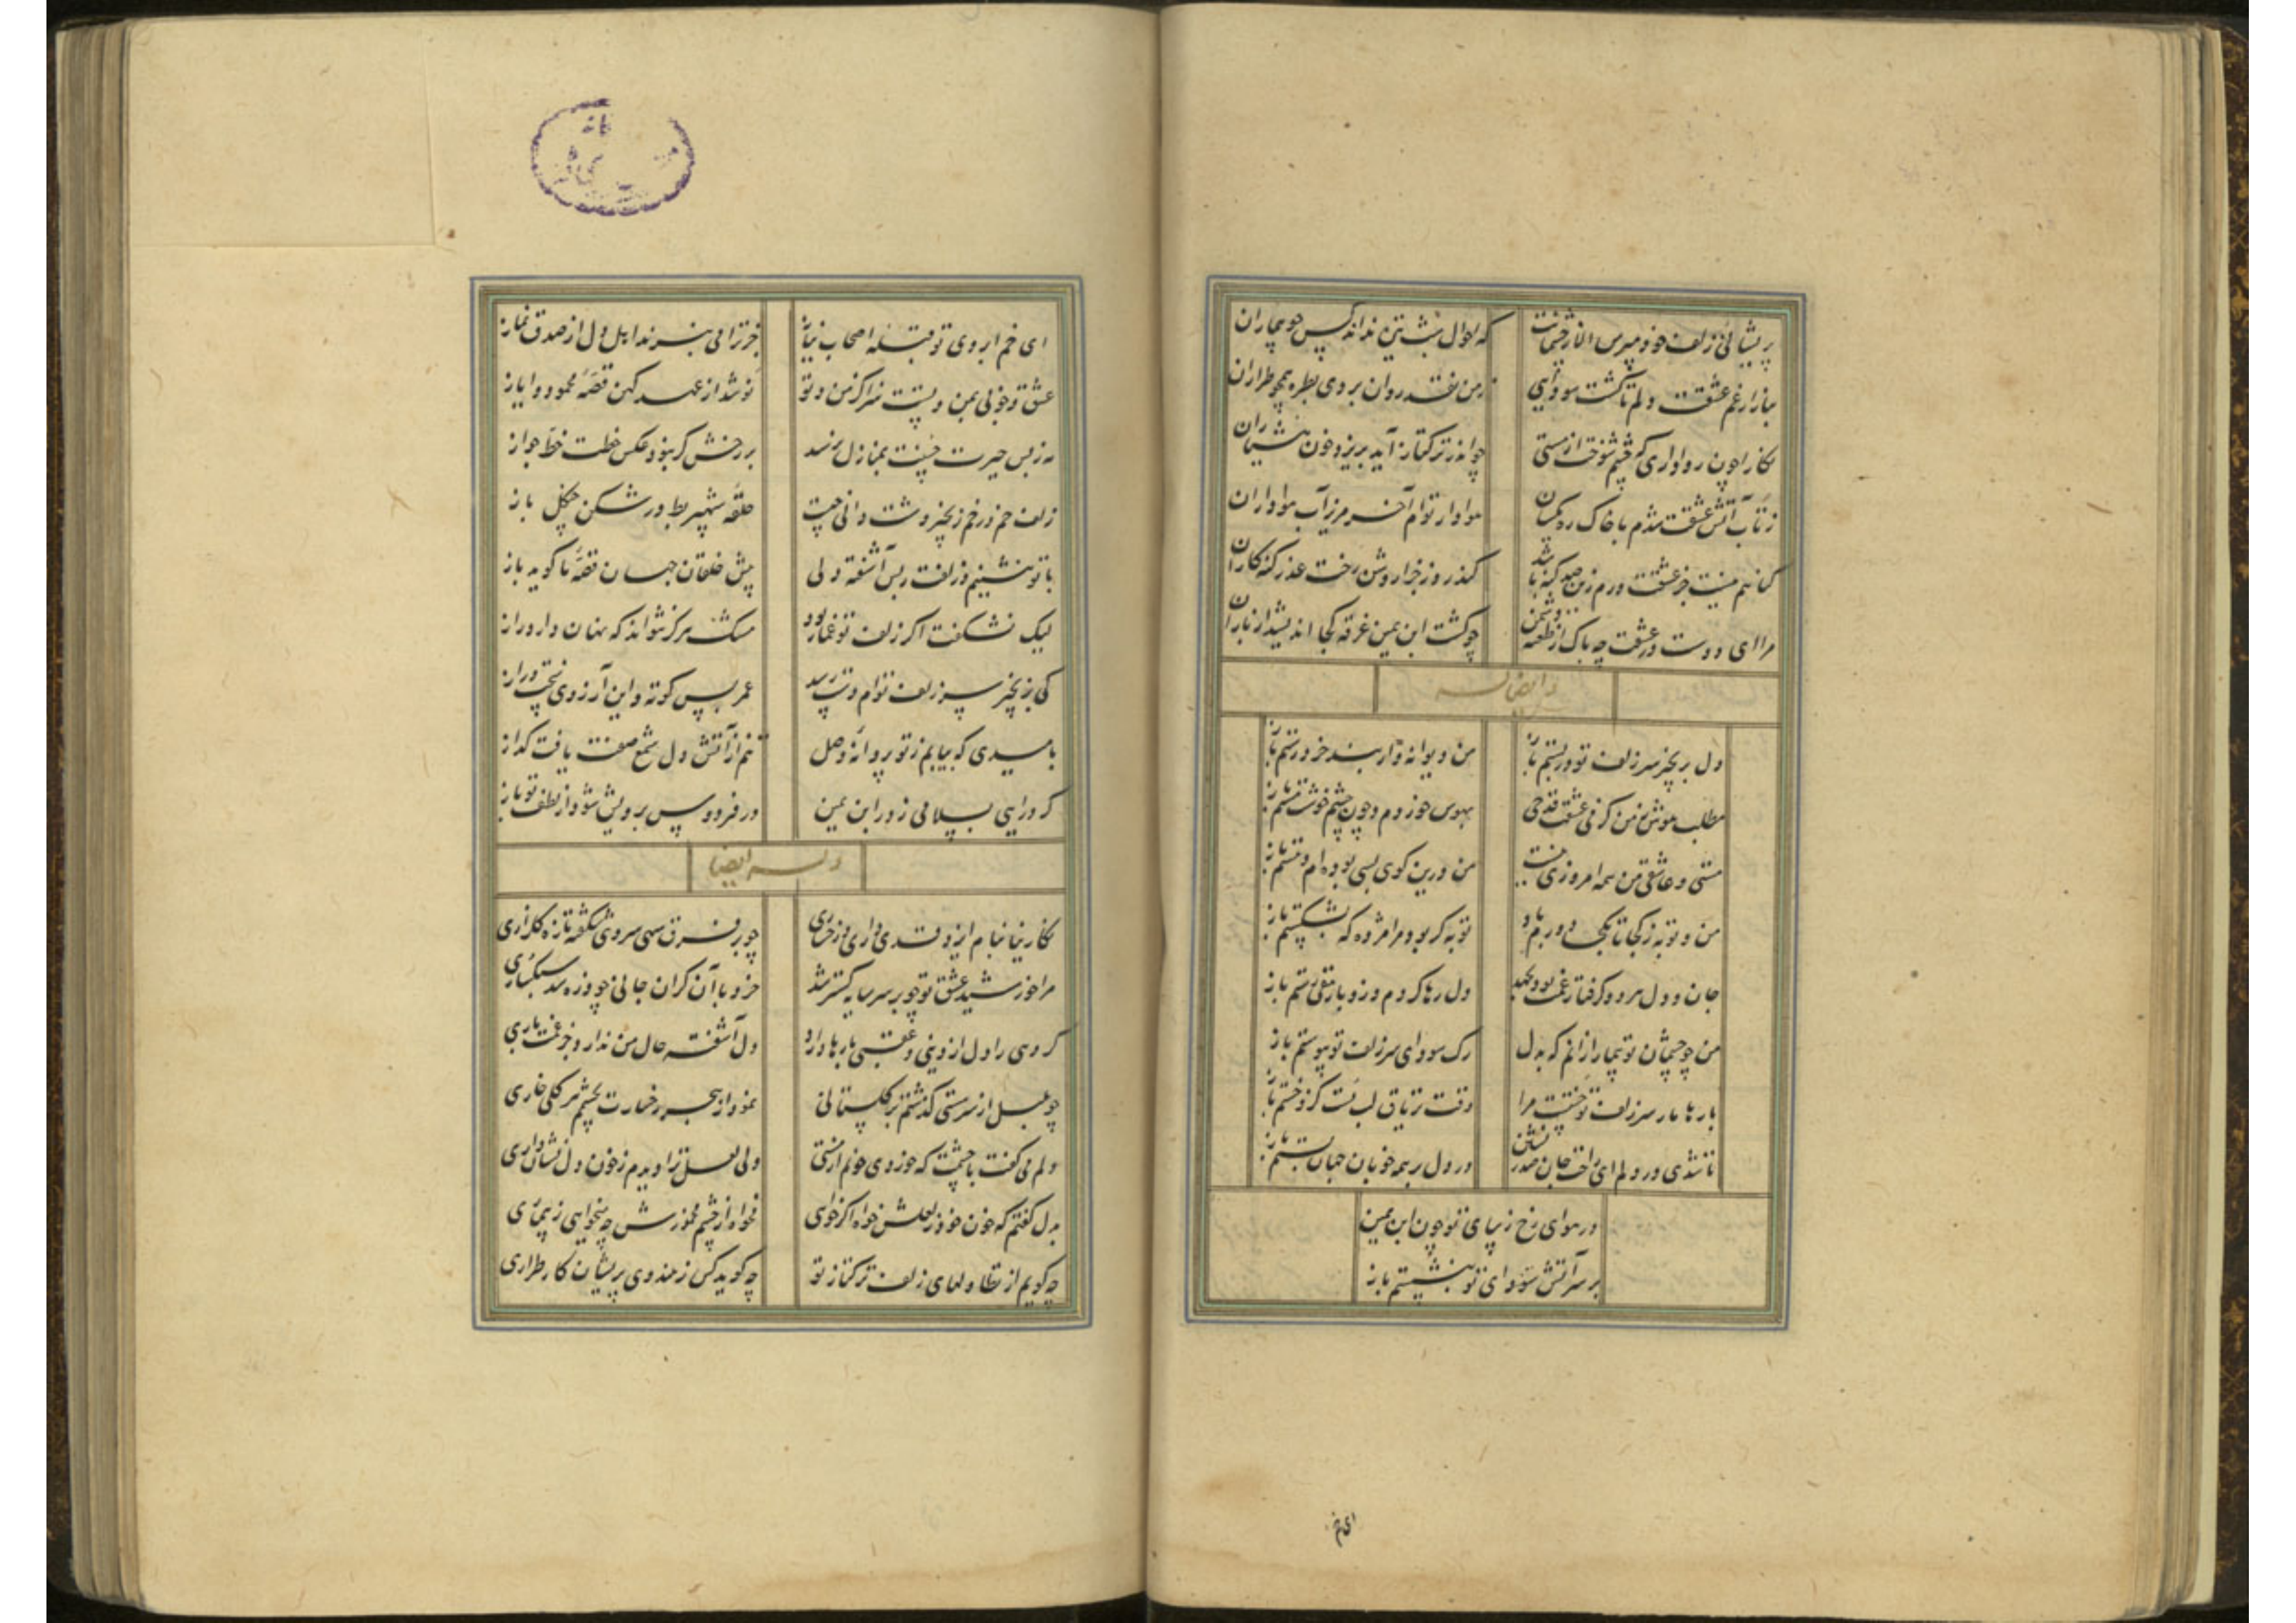 پریشانی زلف خود مپرس الا ز چشمانت
که احوال شب تیره نداند کس چو بیماران
ببازار غم عشقت دلم تا گشت سودایی
ز من نقد روان بردی بطره همچو طراران
نگارا چون رواداری که چشم شوخت از مستی
چو اندر ترکتاز آید بریزد خون هشیاران
ز تاب آتش عشقت شدم با خاک ره یکسان
هوادار توام آخر مریز آب هواداران
گناهم نیست جز عشقت ورم زین صد گنه باشد
گذر روز جزا روشن رخت عذر گنه کاران
مرا ای دوست در عشقت چه باک از طعنه دشمن
چو گشت ابن یمین غرقه کجا اندیشد از باران
و ایضا له
دل بزنجیر سر زلف تو در بستم باز
من دیوانه وار بند خرد رستم باز
مطلب هوش ز من کز می عشقت قدحی
بهوس خوردم و چون چشم خوشت مستم باز
مستی و عاشقی من همه امروزی نیست
من درین کوی بسی بوده ام و هستم باز
من و توبه ز کجا تا بکجا دورم باد
توبه گر بود مرا مژده که بشکستم باز
جان و دل هر دو گرفتار غمت بود بجهد
دل رها کردم و زو بار مقی رستم باز
من چو چشمان تو بیمار ازانم که بدل
رگ سودای سر زلف تو پیوستم باز
بارها مار سر زلف تو خستست مرا
وقت تریاق لب تست کزو خستم باز
تا شدی در دلم ای راحت جان صدر نشین
در دل بر همه خوبان جهان بستم باز
در هوای رخ زیبای تو چون ابن یمین
بر سر آتش سودای تو بنشستم باز
ای خم
ای خم ابروی تو قبله اصحاب نیاز
جز ترا می نبرند اهل دل از صدق نماز
عشق و خوبی بمن و تست سزا کز من و تو
نو شد از عهد کهن قصه محمود و ایاز
نه ز بس حیرت حسنت بمنازل نرسد
بر رخش گر نبود عکس خطت خط جواز
زلف خم در خم زنجیر وشت دانی چیست
حلقه شهپر بط در شکن چنگل باز
با تو بنشینم و زلفت ز بس آشفته دلی
پیش خلقان جهان قصه ما گوید باز
لیک نشگفت اگر زلف تو غماز بود
مشک هرگز نتواند که نهان دارد راز
کی بزنجیر سر زلف توام دست رسد
عمر بس کوته و این آرزوی سخت دراز
بامیدی که بیابم ز تو پروانه وصل
تنم از آتش دل شمع صفت یافت گداز
گر درآیی بسلامی ز در ابن یمین
در فردوس برویش شود از لطف تو باز
وله ایضا
نگارینا بنام ایزد قدی داری و رخساری
چو بر فرق سهی سروی شکفته تازه گلزاری
مرا خورشید عشق تو چو بر سر سایه گستر شد
خرد با آن گران جانی چو ذره شد سبکساری
گروهی را دل از دینی و عقبی بارها دارد
دل آشفته حال من ندارد جز غمت باری
چو بلبل از سر مستی گذشتم بر گلستانی
نمود از هجر رخسارت بچشم هر گلی خاری
دلم می گفت با چشمت که خوردی خونم از مستی
ولی لعل ترا دیدم ز خون دل نشان داری
بدل گفتم که خون خود ز لعلش خواه اگر خواهی
مخواه از چشم مخمورش چه میخواهی ز بیماری
چه گویم از تطاولهای زلف ترکتاز تو
چه گوید کس ز هندوی پریشان کار طراری